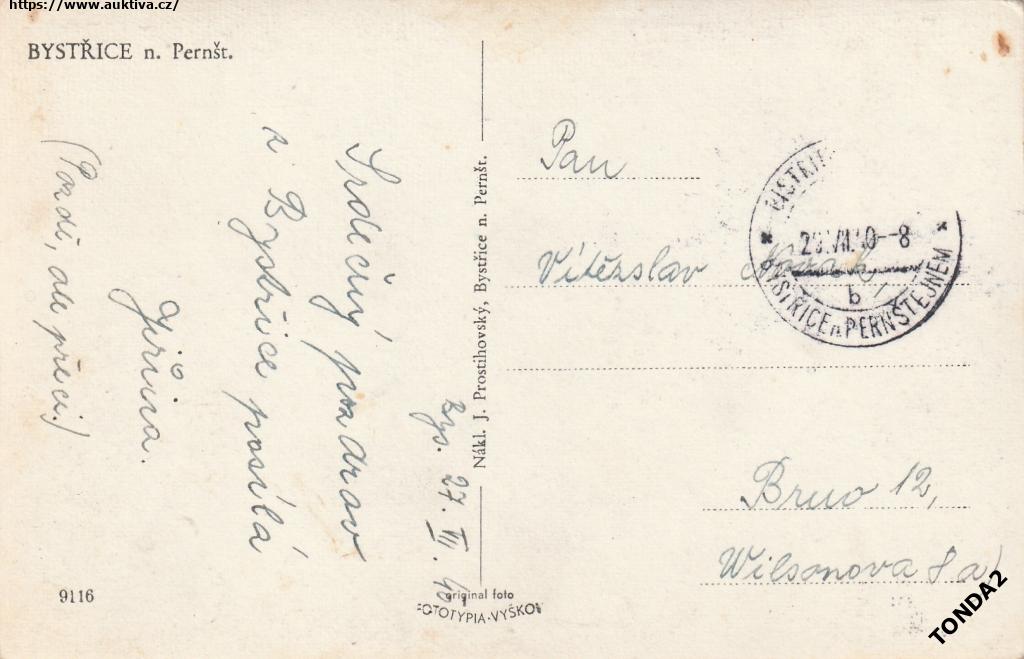 https://www.auktiva.cz/
BYSTŘICE n. Pernšt.
Bys. 27. VII. 40.
Srdečný pozdrav
z Bystřice posílá
Jiřina.
(Pozdě, ale přeci.)
9116
Nákl. J. Prostihovský, Bystřice n. Pernšt.
original foto
FOTOTYPIA-VYŠKOV
Pan
Vítězslav Novák,
Brno 12,
Wilsonova 8a
VII.40--8
b
BYSTŘICE n PERNŠTEJNEM
TONDA2